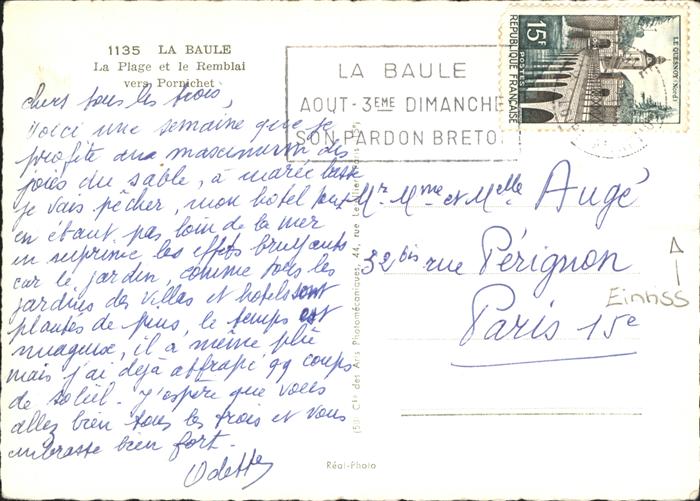 1135 LA BAULE
La Plage et le Remblai
vers Pornichet
chers tous les trois,
Voici une semaine que je
profite au maximum des
joies du sable, à marée basse
je vais pêcher, mon hôtel tout
en étant pas loin de la mer
en supprime les effets bruyants
car le jardin, comme tous les
jardins des villas et hotels sont
plantés de pins, le temps est
nuageux, il a même plu
mais j'ai déjà attrapé qq coups
de soleil. J'espère que vous
allez bien tous les trois et vous
embrasse bien fort.
Odette
LA BAULE
AOUT - 3EME DIMANCHE
SON PARDON BRETO
15F
POSTES
REPUBLIQUE FRANÇAISE
LE QUESNOY (Nord)
Mr. Mme et Melle Augé
32 bis rue Pérignon
Paris 15e
Einriss
Cie des Arts Photomécaniques, 44, rue
Réal-Photo